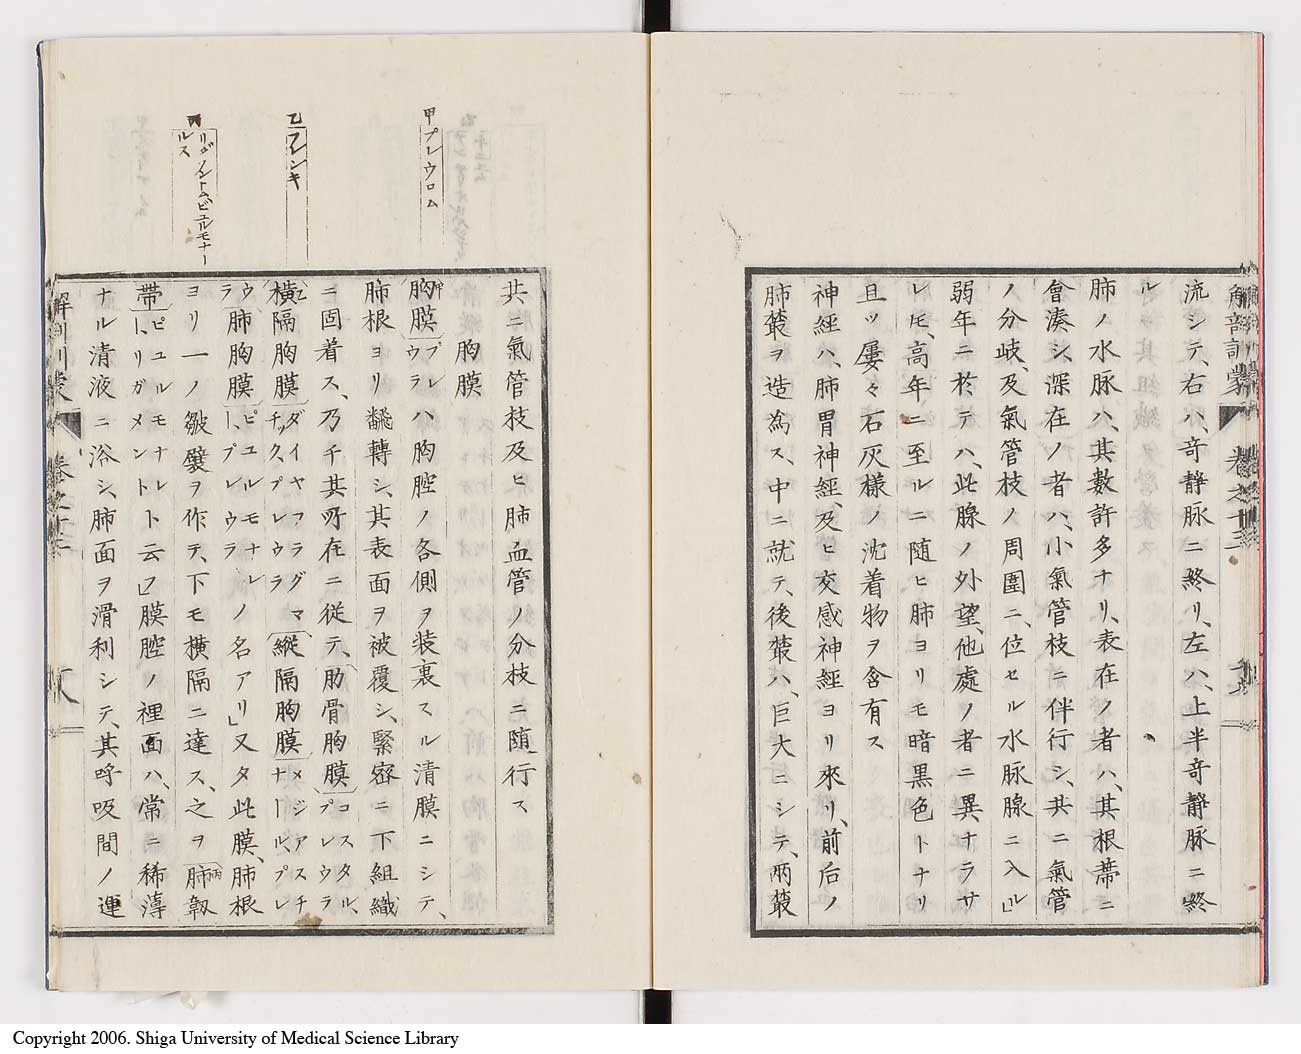 解剖訓蒙 卷之十三
流シテ、右ハ、奇靜脉ニ終リ、左ハ、上半奇靜脉ニ終
ル、
肺ノ水脉ハ、其數許多ナリ、表在ノ者ハ、其根蔕ニ
會湊シ、深在ノ者ハ、小氣管枝ニ伴行シ、共ニ氣管
ノ分岐、及氣管枝ノ周圍ニ、位セル水脉腺ニ入ル」
弱年ニ於テハ、此腺ノ外望、他處ノ者ニ異ナラサ
レ𪜈、高年ニ至ルニ随ヒ肺ヨリモ暗黒色トナリ
且ツ屢々石灰様ノ沈着物ヲ含有ス
神經ハ、肺胃神經、及ヒ交感神經ヨリ來リ、前后ノ
肺叢ヲ造為ス、中ニ就テ、後叢ハ、巨大ニシテ、兩叢
甲プレウロム
乙フレンキ
リガメントム、ピュルモナー
ルス
共ニ氣管枝及ヒ肺血管ノ分枝ニ随、行ス
胸膜
甲胸膜プレウラハ胸腔ノ各側ヲ装裏スル清膜ニシテ、
肺根ヨリ飜轉シ、其表面ヲ被覆シ、緊密ニ下組織
ニ固着ス、乃チ其所在ニ従テ、肋骨胸膜コスタル、プレウラ
乙横隔胸膜ダイヤフラグマチック、プレウラ縦隔胸膜メジアスチナール、プレ
ウラ肺胸膜ピユルモナレー、プレウラノ名アリ」又タ此膜、肺根
ヨリ一ノ皺襞ヲ作テ、下モ横隔ニ達ス、之ヲ丙肺靱
帶ピユルモナレー、リガメントト云フ」膜腔ノ裡面ハ、常ニ稀薄
ナル清液ニ浴シ、肺面ヲ滑利シテ、其呼吸間ノ運
解剖訓蒙 卷之十三